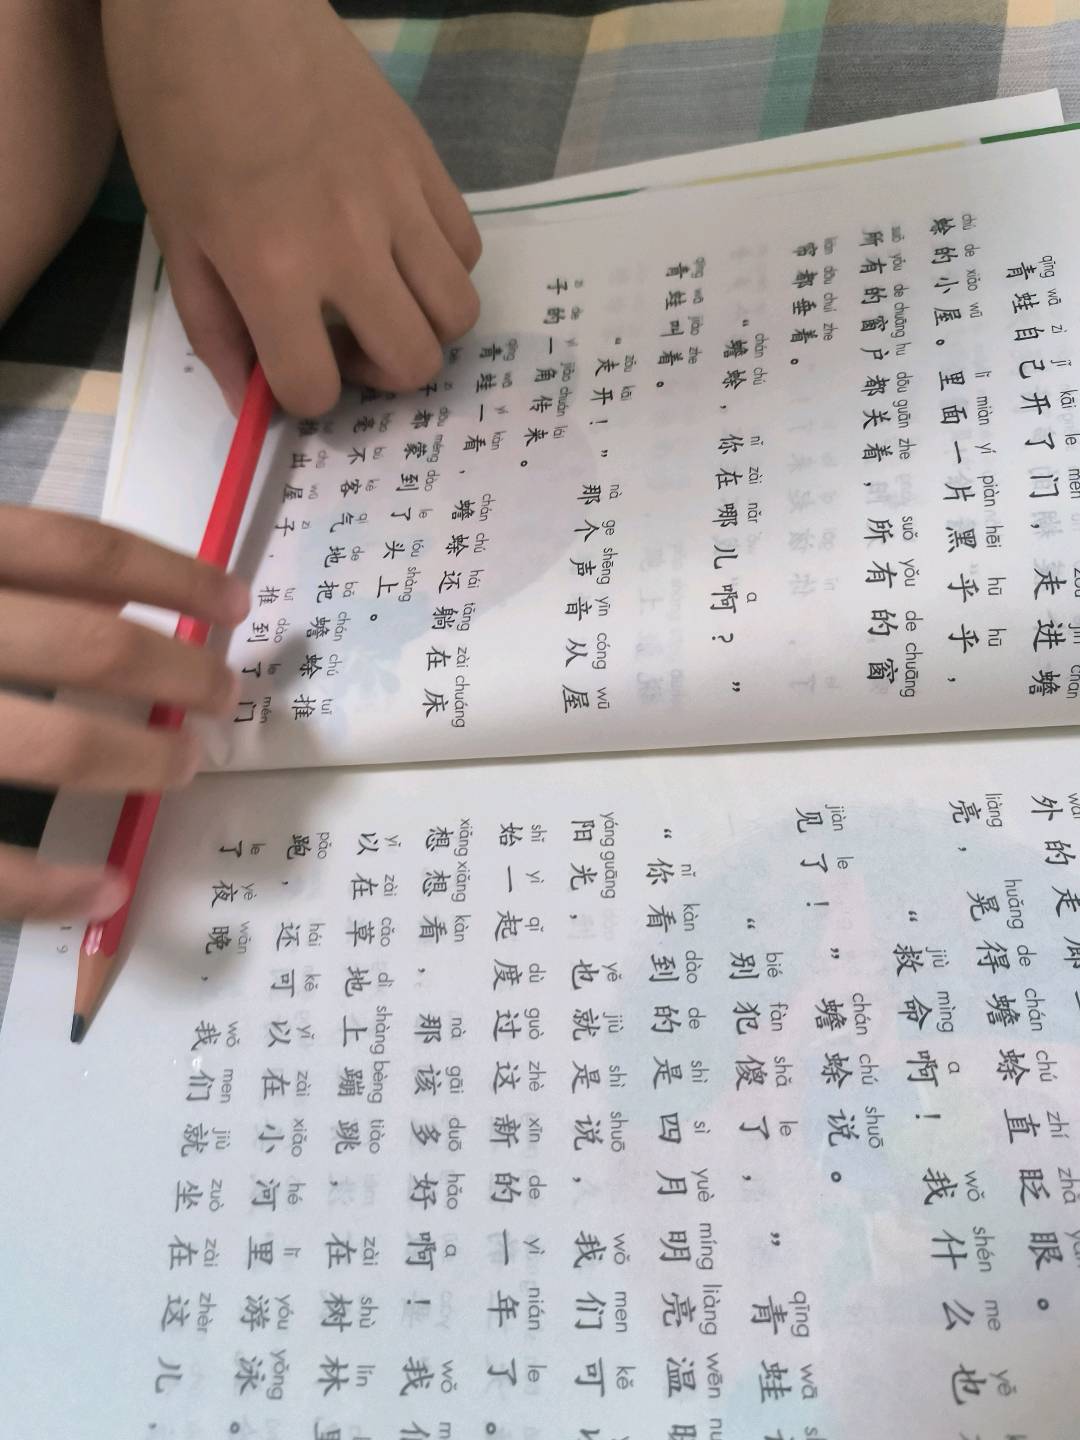 qīng wā zì jǐ kāi le mén zǒu jìn chán
青蛙自己开了门，走进蟾
chú de xiǎo wū lǐ miàn yí piàn hēi hū hū
蜍的小屋。里面一片黑乎乎，
suǒ yǒu de chuāng hu dōu guān zhe suǒ yǒu de chuāng
所有的窗户都关着，所有的窗
lián dōu chuí zhe
帘都垂着。
chán chú nǐ zài nǎr a
“蟾蜍，你在哪儿啊？”
qīng wā jiào zhe
青蛙叫着。
zǒu kāi nà ge shēng yīn cóng wū
“走开！”那个声音从屋
zi de yì jiǎo chuán lái
子的一角传来。
qīng wā yí kàn chán chú hái tǎng zài chuáng
青蛙一看，蟾蜍还躺在床
zi dōu méng dào le tóu shàng
子都蒙到了头上。
háo bú kè qi de bǎ chán chú tuī
毫不客气地把蟾蜍推
tuī chū wū zi tuī dào le mén
推出屋子，推到了门
18
wài
外的走廊
liàng huǎng de chán chú zhí zhǎ yǎn
亮，晃得蟾蜍直眨眼。
jiù mìng a wǒ shén me yě
“救命啊！我什么也
jiàn le chán chú shuō
见了！”蟾蜍说。
bié fàn shǎ le qīng wā
“别犯傻了，”青蛙
nǐ kàn dào de shì sì yuè míng liàng wēn
“你看到的是四月明亮温
yáng guāng yě jiù shì shuō wǒ men kě
阳光，也就是说，我们可
shǐ yì qǐ dù guò zhè xīn de yì nián le
始一起度过这新的一年了。
xiǎng xiǎng kàn nà gāi duō hǎo a wǒ
想想看，那该多好啊！我
yǐ zài cǎo dì shàng bèng tiào zài shù lín
以在草地上蹦跳，在树林
pǎo hái kě yǐ zài xiǎo hé lǐ yóu yǒng
跑，还可以在小河里游泳。
le yè wǎn wǒ men jiù zuò zài zhèr
了夜晚，我们就坐在这儿，
19